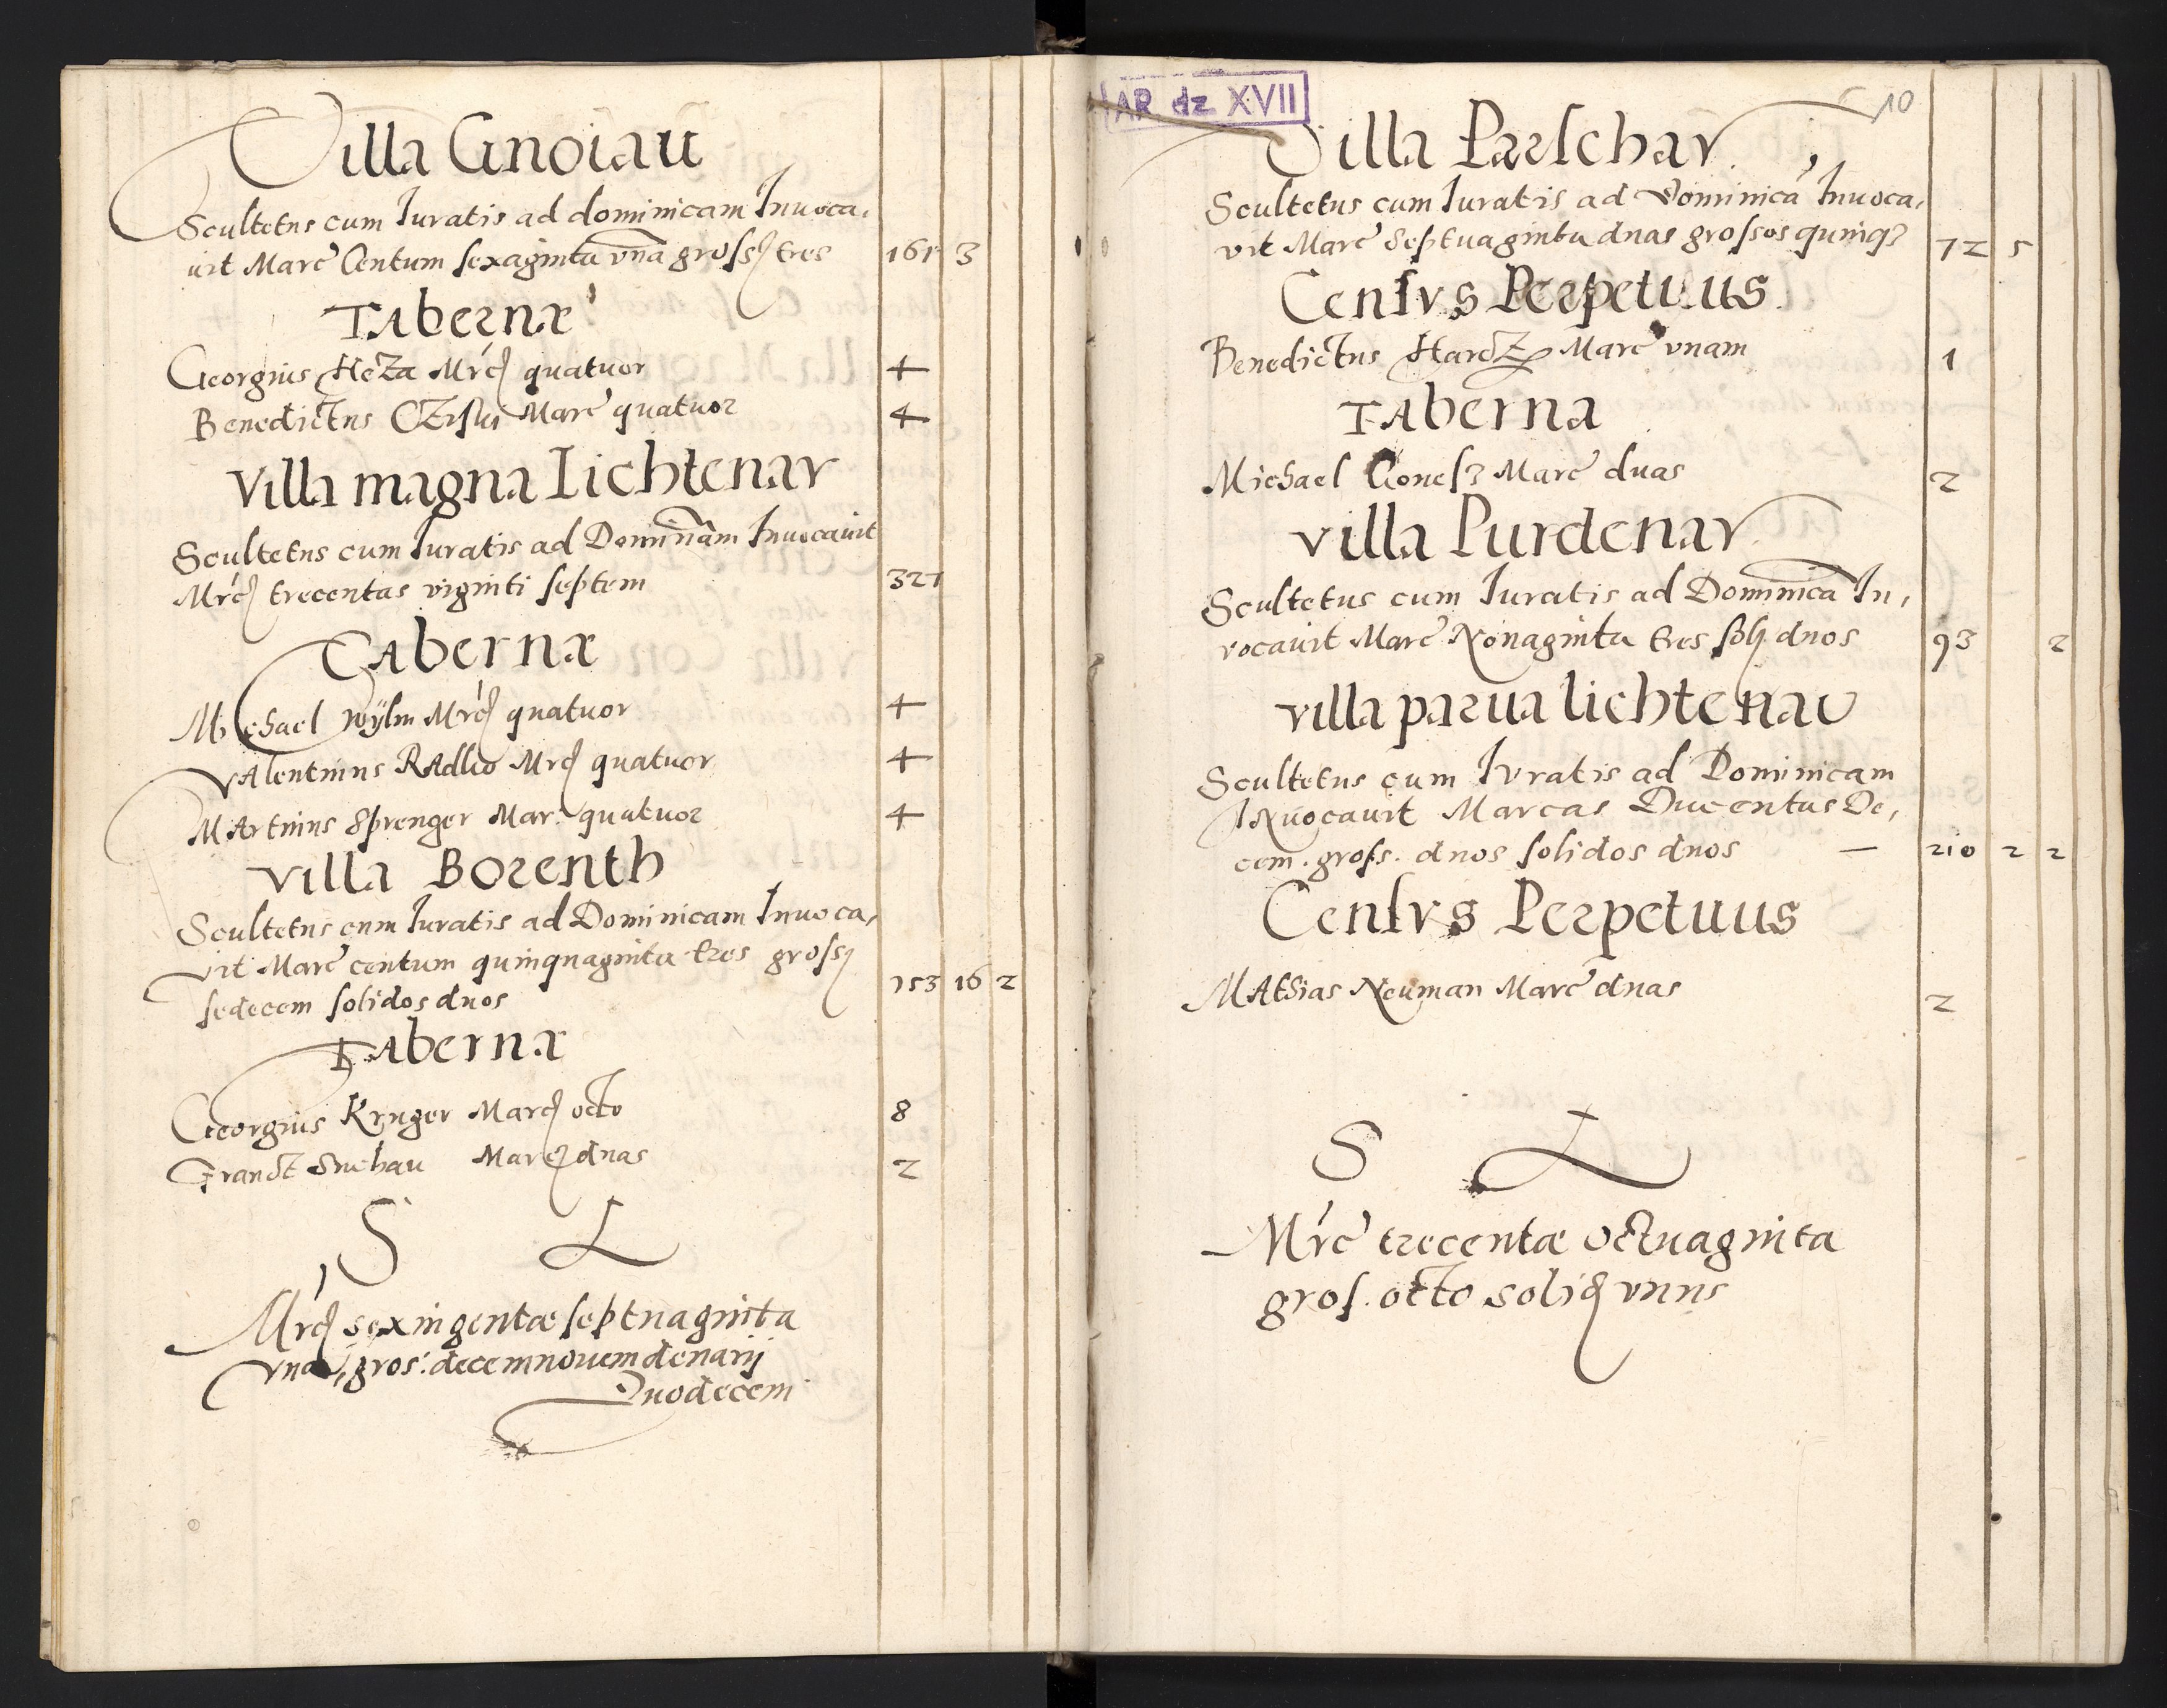 Villa Gnoiau
Scultetus cum Iuratis ad dominicam Inuoca,
uit Marc Centum sexaginta vna gross tres 161 3
Tabernæ
Georgius Heza Mrc quatuor 4
Benedictus Marc quatuor 4
Villa magna Lichtenav
Scultetus cum Iuratis ad Dominicam Inuocauit
Mrc trecentas viginti septem 327
Tabernæ
Michael Wÿlm Mrc quatuor 4
Valentinus Mrc quatuor 4
Martinus Sprenger Mar quatuor 4
villa Borenth
Scultetus cum Iuratis ad Dominicam Inuoca,
vit Marc centum quinquaginta tres gross
sedecem solidos duos 153 16 2
Tabernæ
Georgius Kruger Marc octo 8
Marc duas 2
S L
Mrc sexingentæ septuaginta
vna, gros: decemnouem denarij
Duodecem
AR dz XVII
10
Villa Parschav
Scultetus cum Iuratis ad Dominicā Inuoca,
vit Marc Septuaginta duas grossos quinq3 72 5
Censvs Perpetuus
Benedictus Marc vnam 1
Taberna
Michael Marc duas 2
villa Purdenav
Scultetus cum Iuratis ad Dominicā In,
vocauit Marc Nonaginta tres sol duos 93 2
villa parua lichtenav
Scultetus cum Ivratis ad Dominicam
Inuocauit Marcas Ducentas De,
cem. gross. duos solidos duos — 210 2 2
Censvs Perpetuus
Mathias Neuman Marc duas 2
S L
Mrc trecentæ octuaginta
gros. octo solid vnus